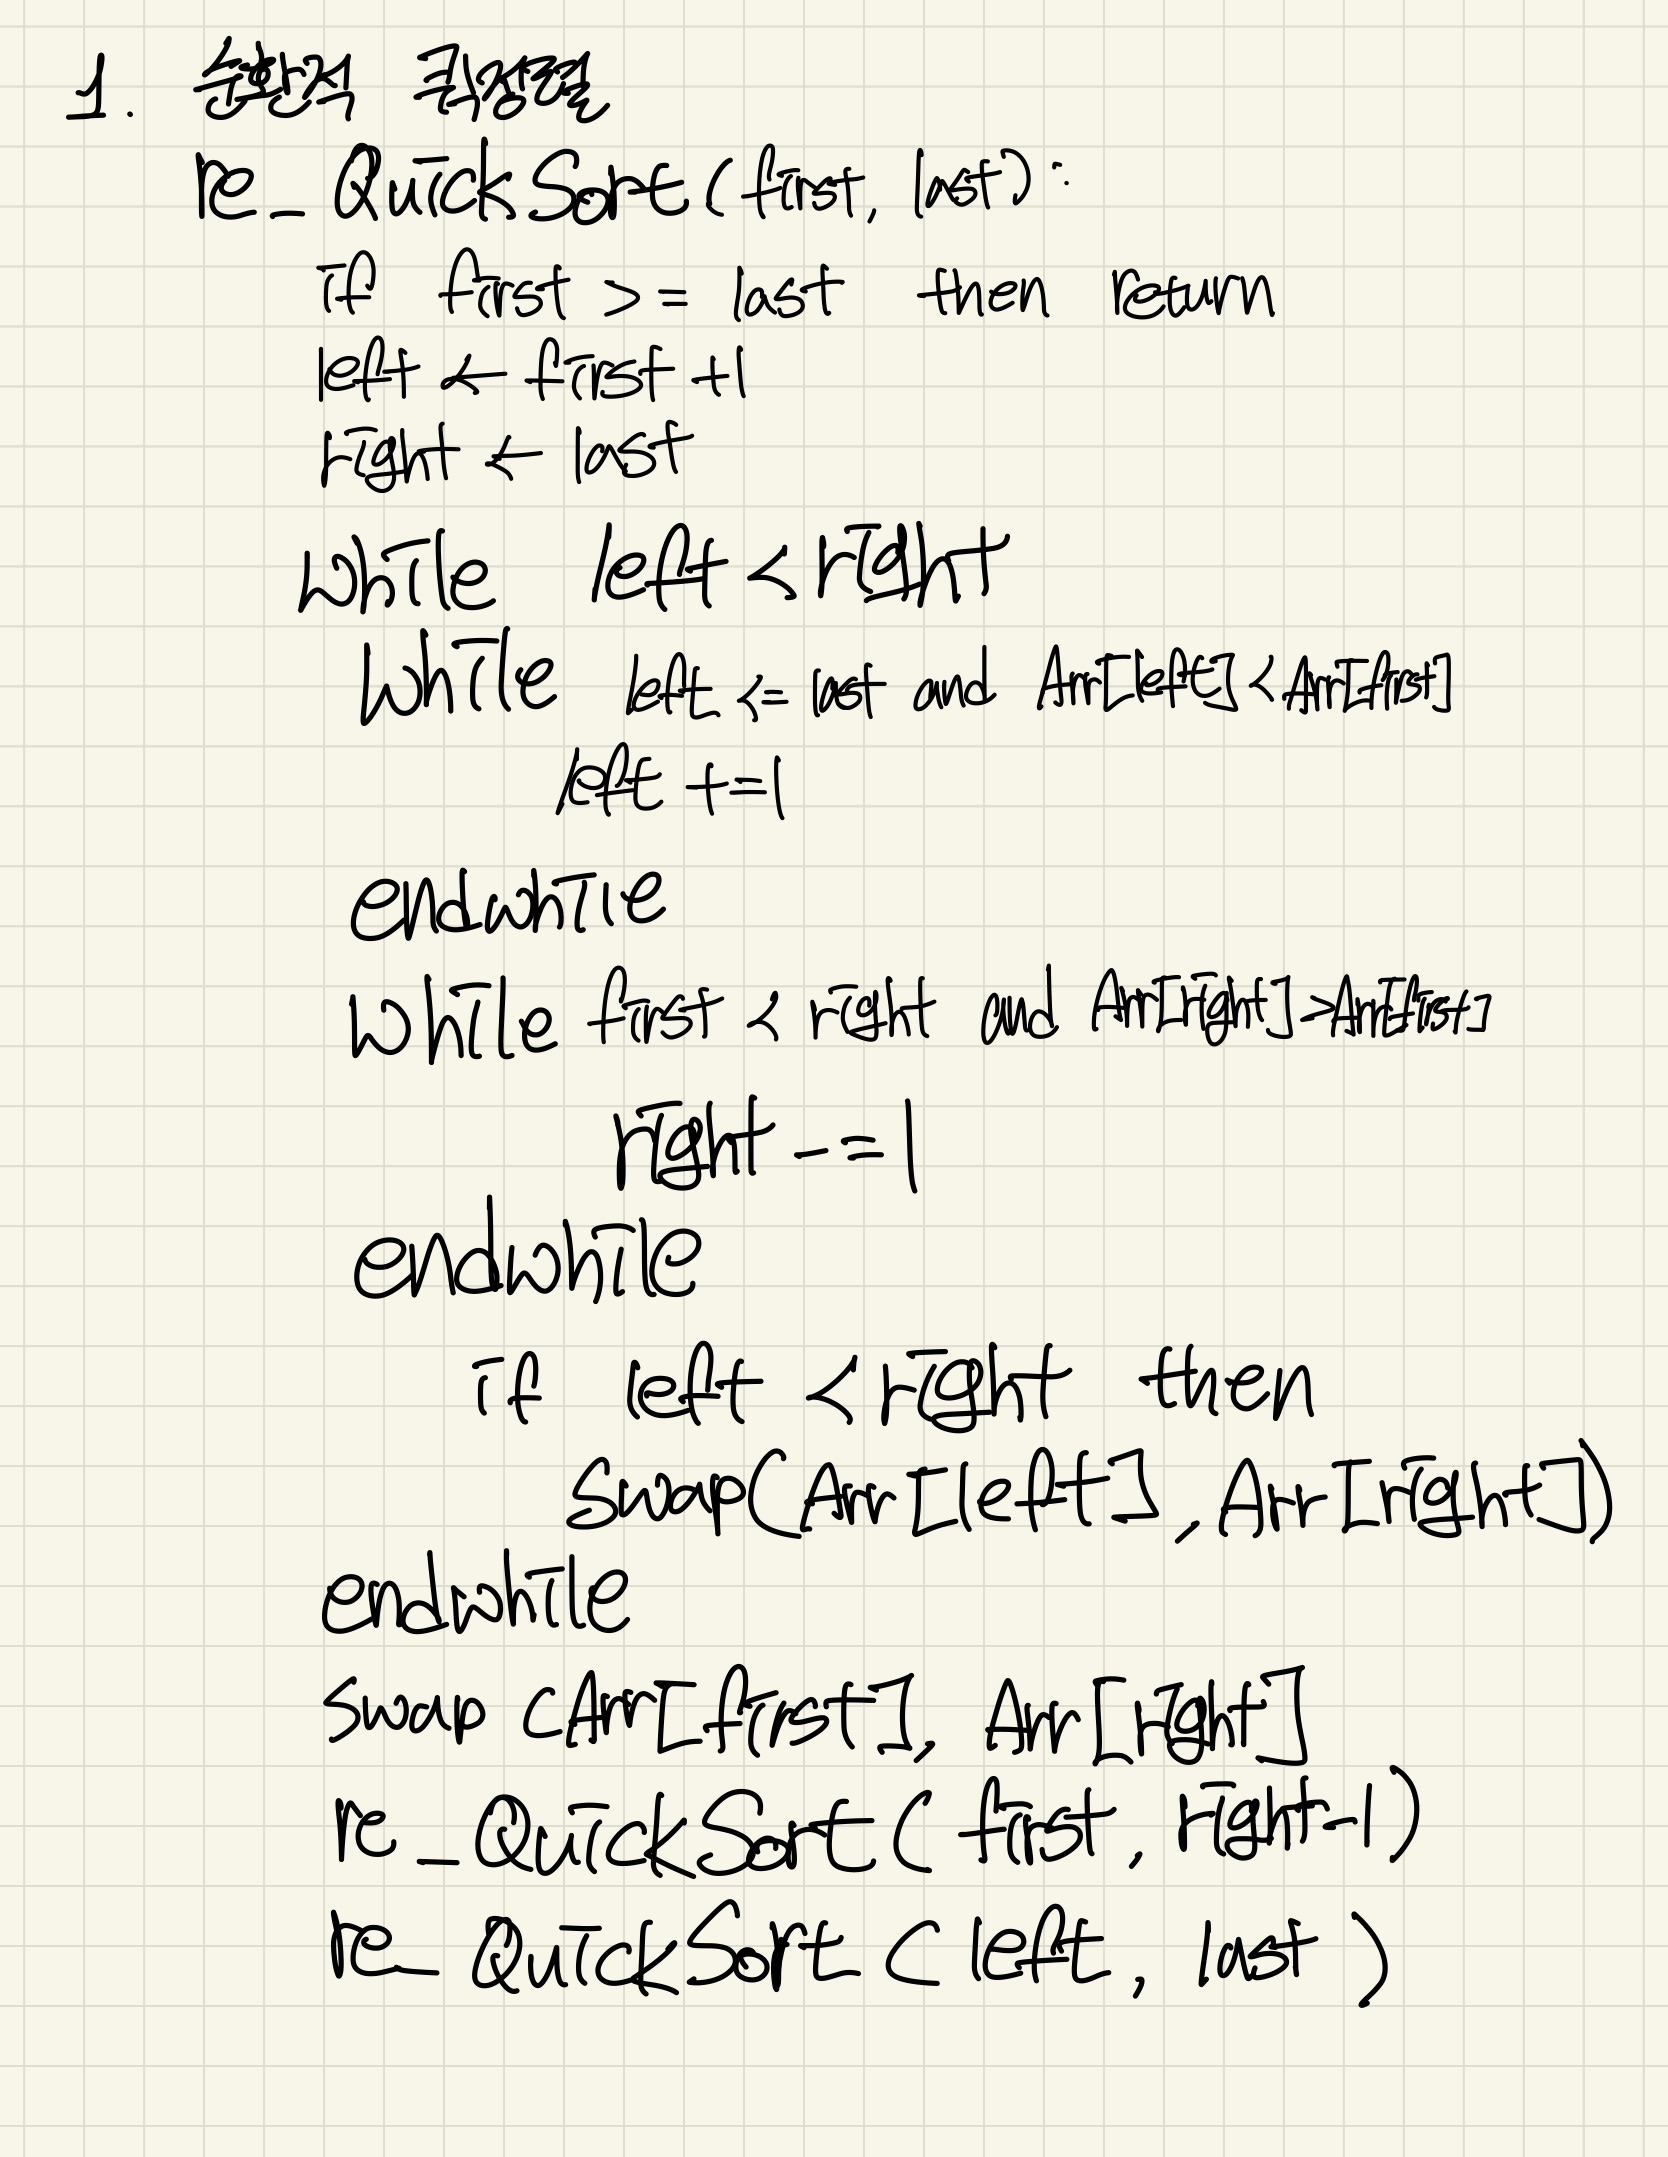 1. 순환적 퀵정렬
re_QuickSort(first, last):
if first >= last then return
left ← first +1
right ← last
while left < right
while left <= last and Arr[left] < Arr[first]
left +=1
endwhile
while first < right and Arr[right] > Arr[first]
right -=1
endwhile
if left < right then
swap(Arr[left], Arr[right])
endwhile
swap (Arr[first], Arr[right]
re_QuickSort(first, right-1)
re_QuickSort(left, last)